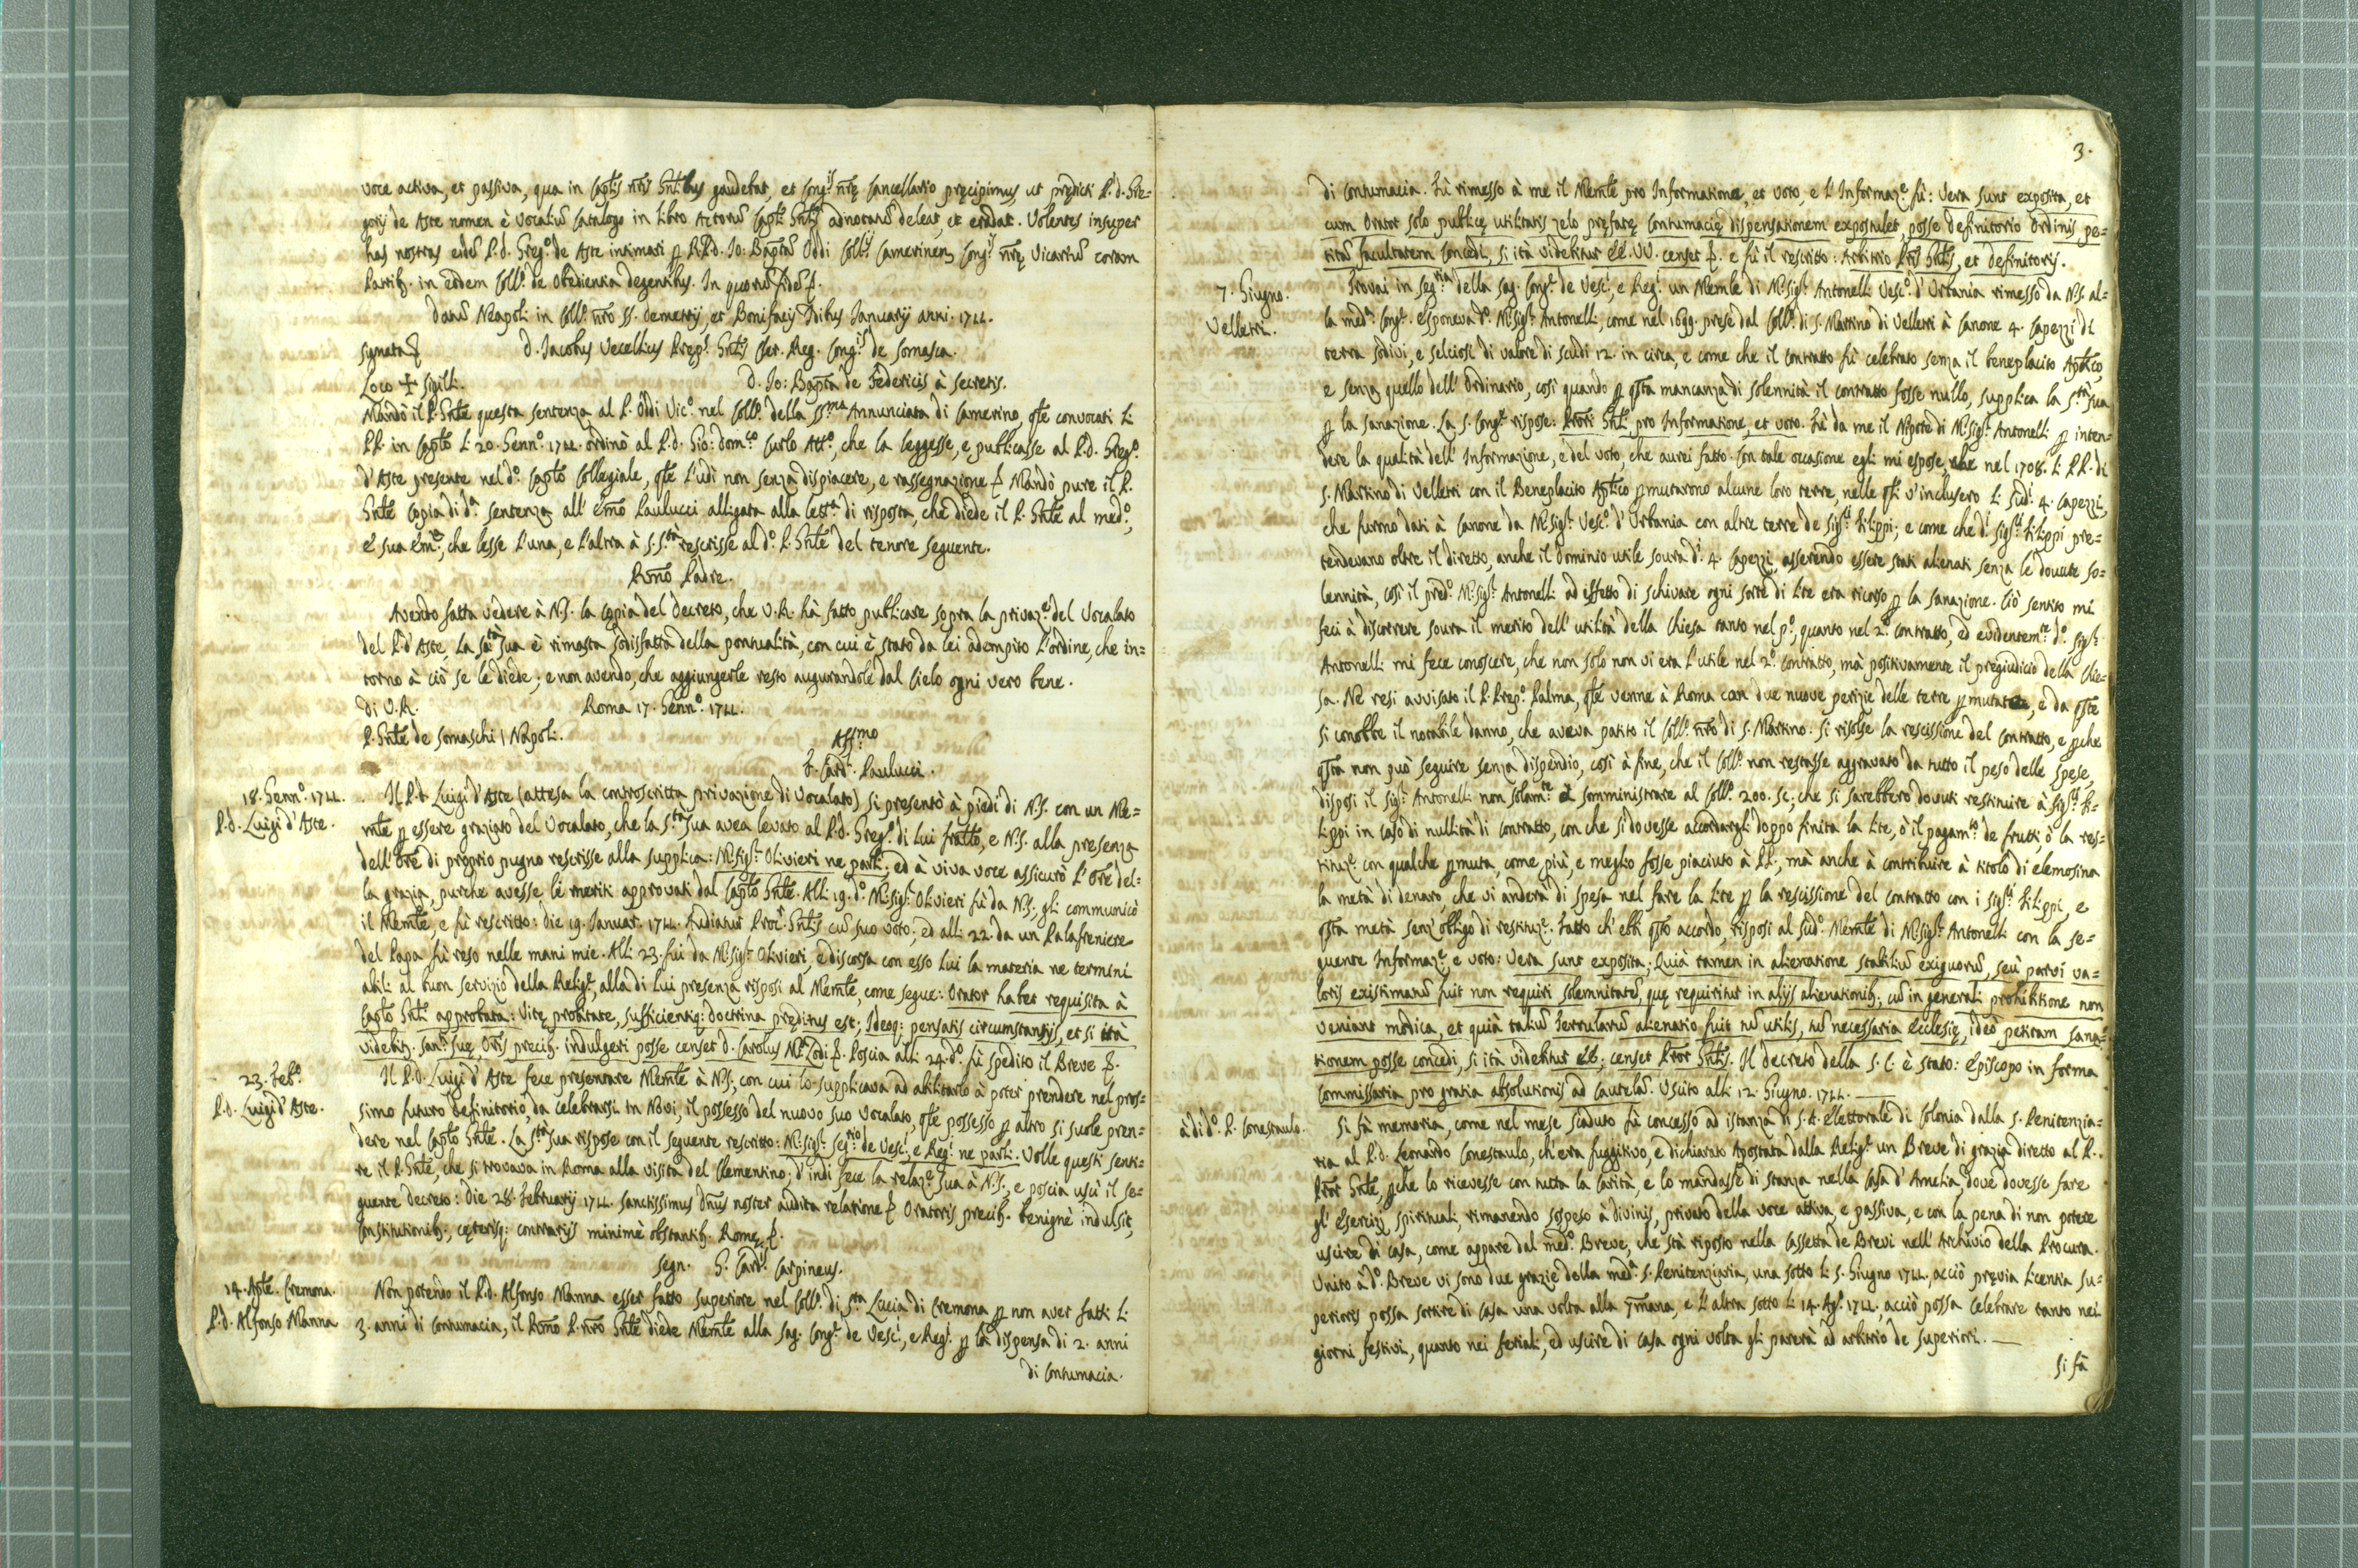 voce activa, et passiva, qua in Captis nris Gntibus gaudebat, et Congis nrę Cancellario pręcipimus, ut prędicti P. d. Gre=
gorij de Aste nomen è Vocaliū Catalogo in Libro Actorū Capti Gntis adnotatū deleat, et eradat. Volentes insuper
has nostras eidē P. d. Grego. de Aste intimari p R.P.d. Io: Baptām Oddi Collij Camerinen, Congis nrę Vicariū coram
Patrib. in eodem Collo. de Obedientia degentibus. In quorū fidē &.
Datū Neapoli in Collo. nro SS. Demetrij, et Bonifacij Idibus Januarij anni. 1722.
Signata & D. Jacobus Vecellius Prepo. Gntis Cler. Reg. Congis de Somasca.
Loco + Sigilli. D. Io: Bapta de Federicis à Secretis.
Mandò il P. Gnte questa sentenza al P. Oddi Vico. nel Collo. della SSma Annunciata di Camerino, qte convocati li
PP. in Capto li 20. Genno. 1722. ordinò al P. d. Gio: Domco Curlo Atto., che la leggesse, e publicasse al P. d. Grego.
d'Aste presente nel do. Capto Collegiale, qte l'udì non senza dispiacere, e rassegnazione & Mandò pure il P.
Gnte Copia di da. sentenza all' Emo Paulucci alligata alla letta. di risposta, che diede il P. Gnte al medo.,
e Sua Emza, che lesse l'una, e l'altra à S. Stà rescrisse al do. P. Gnte del tenore seguente.
Rmo Padre.
Avendo fatta vedere à N.S. la copia del decreto, che V.R. hà fatto publicare sopra la privaze del Vocalato
del P. d'Aste, La Stà Sua è rimasta sodisfatta della pontualità, con cui è stato da lei adempito l'ordine, che in=
torno à ciò se le diede; e non avendo, che aggiungerle resto augurandole dal Cielo ogni vero bene.
Di V.R. Roma 17. Genno. 1722.
P. Gnte de Somaschi \ Napoli.
Affmo
F. Card. Paulucci.
18. Genno. 1722. Il P. d. Luigi d'Aste (attesa la controscritta privazione di Vocalato) si presentò à piedi di N.S. con un Me=
P. d. Luigi d'Aste. mle p essere graziato del Vocalato, che la Stà Sua avea levato al P. d. Grego. di lui fratto, e N.S. alla presenza
dell' Ore di proprio pugno rescrisse alla supplica: Mr. Sigr. Olivieri ne parli; ed à viva voce assicurò l'Ore del=
la grazia, purche avesse li meriti approvati dal Capto Gnte. Alli 19. do. Mr. Sigr. Olivieri fù da N.S., gli communicò
il Memle, e fù rescritto: Die 19. Januar. 1722. Audiatur Procr. Gntis cū suo voto; ed alli 22. da un Palafreniere
del Papa fù reso nelle mani mie. Alli 23. fui da Mr. Sigr. Olivieri, e discorsa con esso lui la materia ne termini
abili al buon servizio della Relige, alla di lui presenza risposi al Memle, come segue: Orator habet requisita à
Capto Gnti approbata: Vitę probitate, sufficientiq: doctrina pręditus est; Ideoq: pensatis circumstantijs, et si ità
videbit. Santi Suę, Oris precib. indulgeri posse censet D. Carolus Ma. Lodi &. Poscia alli 24. do. fù spedito il Breve &.
23. Febo. Il P. d. Luigi d'Aste fece presentare Memle à N.S., con cui lo supplicava ad abilitarlo à poter prendere nel pros=
P. d. Luigi d'Aste. simo futuro Definitorio, da celebrarsi in Novi, il possesso del nuovo suo Vocalato, qte possesso p altro si suole pren=
dere nel Capto Gnte. La Stà Sua rispose con il seguente rescritto: Mr. Sigr. Segrio de Vesci, e Regi ne parli. Volle questi senti=
re il P. Gnte, che si trovava in Roma alla visita del Clementino; d'indi fece la relaze Sua à N.S., e poscia uscì il se=
guente decreto: Die 28. Februarij 1722. Sanctissimus Dnus noster audita relatione & Oratoris precib. benignè indulsit,
Constitutionib., cęterisq: contrarijs minimè obstantib. Romę &.
Segn. G. Cardlis Carpineus.
14. Aple. Cremona. Non potendo il P. d. Alfonso Manna esser fatto superiore nel Collo. di Sta Lucia di Cremona p non aver fatti li
P. d. Alfonso Manna 3. anni di Contumacia, il Rmo P. nro Gnte diede Memle alla Sag. Conge de Vesci, e Regi p la dispensa di 2. anni
di Contumacia.
3.
di Contumacia. Fù rimesso à me il Memle pro Informatione, et voto, e l'Informaze fù: Vera sunt exposita, et
cum Orator solo publicę utilitatis zelo pręfatę Contumacię dispensationem expostulet, posse Definitorio Ordinis pe=
titā facultatem concedi, si ità videbitur EE. VV. censet &. e fù il rescritto: Arbitrio Pris Gntis, et Definitorij.
7. Giugno. Velletri. Trovai in Segria della Sag. Conge de Vesci, e Regi un Memle di Mr. Sigr. Antonelli Vesco. d'Urbania rimesso da N.S. al=
la meda. Conge. Esponeva do. Mr. Sigr. Antonelli, come nel 1699. prese dal Collo. di S. Martino di Velletri à Canone 4. Capezzi di
terra sodivi, e selciosi di valore di scudi 12. in circa, e come che il contratto fù celebrato senza il beneplacito Aptico,
e senza quello dell' Ordinario, così quando p qsta mancanza di solennità il contratto fosse nullo, supplica la Stà Sua
p la sanazione. La S. Conge rispose: Procri Gnti pro Informatione, et voto. Fù da me il Nipote di Mr. Sigr. Antonelli p inten=
dere la qualità dell' Informazione, e del voto, che aurei fatto. Con tale occasione egli mi espose, che nel 1708. li PP. di
S. Martino di Velletri con il Beneplacito Aptico pmutarono alcune loro terre, nelle qli v'inclusero li sudi 4. Capezzi,
che furno dati à Canone da Mr. Sigr. Vesco. d'Urbania con altre terre de Sigri Filippi; e come che di Sigri Filippi pre=
tendevano oltre il diretto, anche il dominio utile soura di 4. Capezzi, asserendo essere stati alienati senza le dovute so=
lennità, così il predo. Mr. Sigr. Antonelli ad effetto di schivare ogni sorte di lite era ricorso p la sanazione. Ciò sentito mi
feci à discorrere soura il merito dell' utilità della Chiesa tanto nel po., quanto nel 2o. contratto, ed evidentemte do. Sigr.
Antonelli mi fece conoscere, che non solo non vi era l'utile nel 2o. contratto, mà positivamente il pregiudicio della Chie=
sa. Ne resi avvisato il P. Prepo. Palma, qte venne à Roma con due nuove perizie delle terre pmutate, e da qste
si conobbe il notabile danno, che aveva patito il Collo. nro di S. Martino. Si risolse la rescissione del contratto, e pche
qsta non può seguire senza dispendio, così à fine, che il Collo. non restasse aggravato da tutto il peso delle spese,
disposi il Sigr. Antonelli non solamte à somministrare al Collo. 200. sc., che si sarebbero dovuti restituire à Sigri Fi=
lippi in caso di nullità di contratto, con che si dovesse accordargli doppo finita la lite, ò il pagamto de frutti, ò la res=
tituze con qualche pmuta, come più, e meglio fosse piaciuto à PP., mà anche à contribuire à titolo di elemosina
la metà di denaro, che vi anderà di spesa nel fare la lite p la rescissione del contratto con i Sigri Filippi, e
qsta metà senz' obligo di restituze. Fatto ch' ebbi qsto accordo, risposi al sudo. Memle di Mr. Sigr. Antonelli con la se=
guente Informaze, e voto: Vera sunt exposita; Quià tamen in alienatione stabiliū exiguorū, seù parvi va=
loris existimatū fuit non requiri solemnitatē, quę requiritur in alijs alienationib., cū in generali prohibitione non
veniant modica, et quià taliū terrularū alienatio fuit tū utilis, tū necessaria Ecclesię, ideò petitam sana=
tionem posse concedi, si ità videbitur EE., censet Procr Gntis. Il decreto della S. C. è stato: Episcopo in forma
Commissaria pro gratia absolutionis ad cautelā. Uscito alli 12. Giugno. 1722.
à di do. P. Conestaulo. Si fà memoria, come nel mese scaduto fù concesso ad istanza di S. A. Elettorale di Colonia dalla S. Penitenzia=
ria al P. d. Leonardo Conestaulo, ch'era fuggitivo, e dichiarato Apostata dalla Relige un Breve di grazia diretto al P.
Procr Gnte, pche lo ricevesse con tutta la Carità, e lo mandasse di stanza nella Casa d'Amelia, dove dovesse fare
gl' Esercizij spirituali, rimanendo sospeso à divinis, privato della voce attiva, e passiva, e con la pena di non potere
uscire di casa, come appare dal medo. Breve, che stà riposto nella Cassetta de Brevi nell' Archivio della Procura.
Unito à do. Breve vi sono due grazie della meda. S. Penitenziaria, una sotto li 5. Giugno 1722, acciò pręvia licentia Su=
perioris possa sortire di casa una volta alla 7mana, e l'altra sotto li 14. Ago. 1722, acciò possa celebrare tanto nei
giorni festivi, quanto nei feriali, ed uscire di casa ogni volta gli parerà ad arbitrio de Superiori.
Si fà